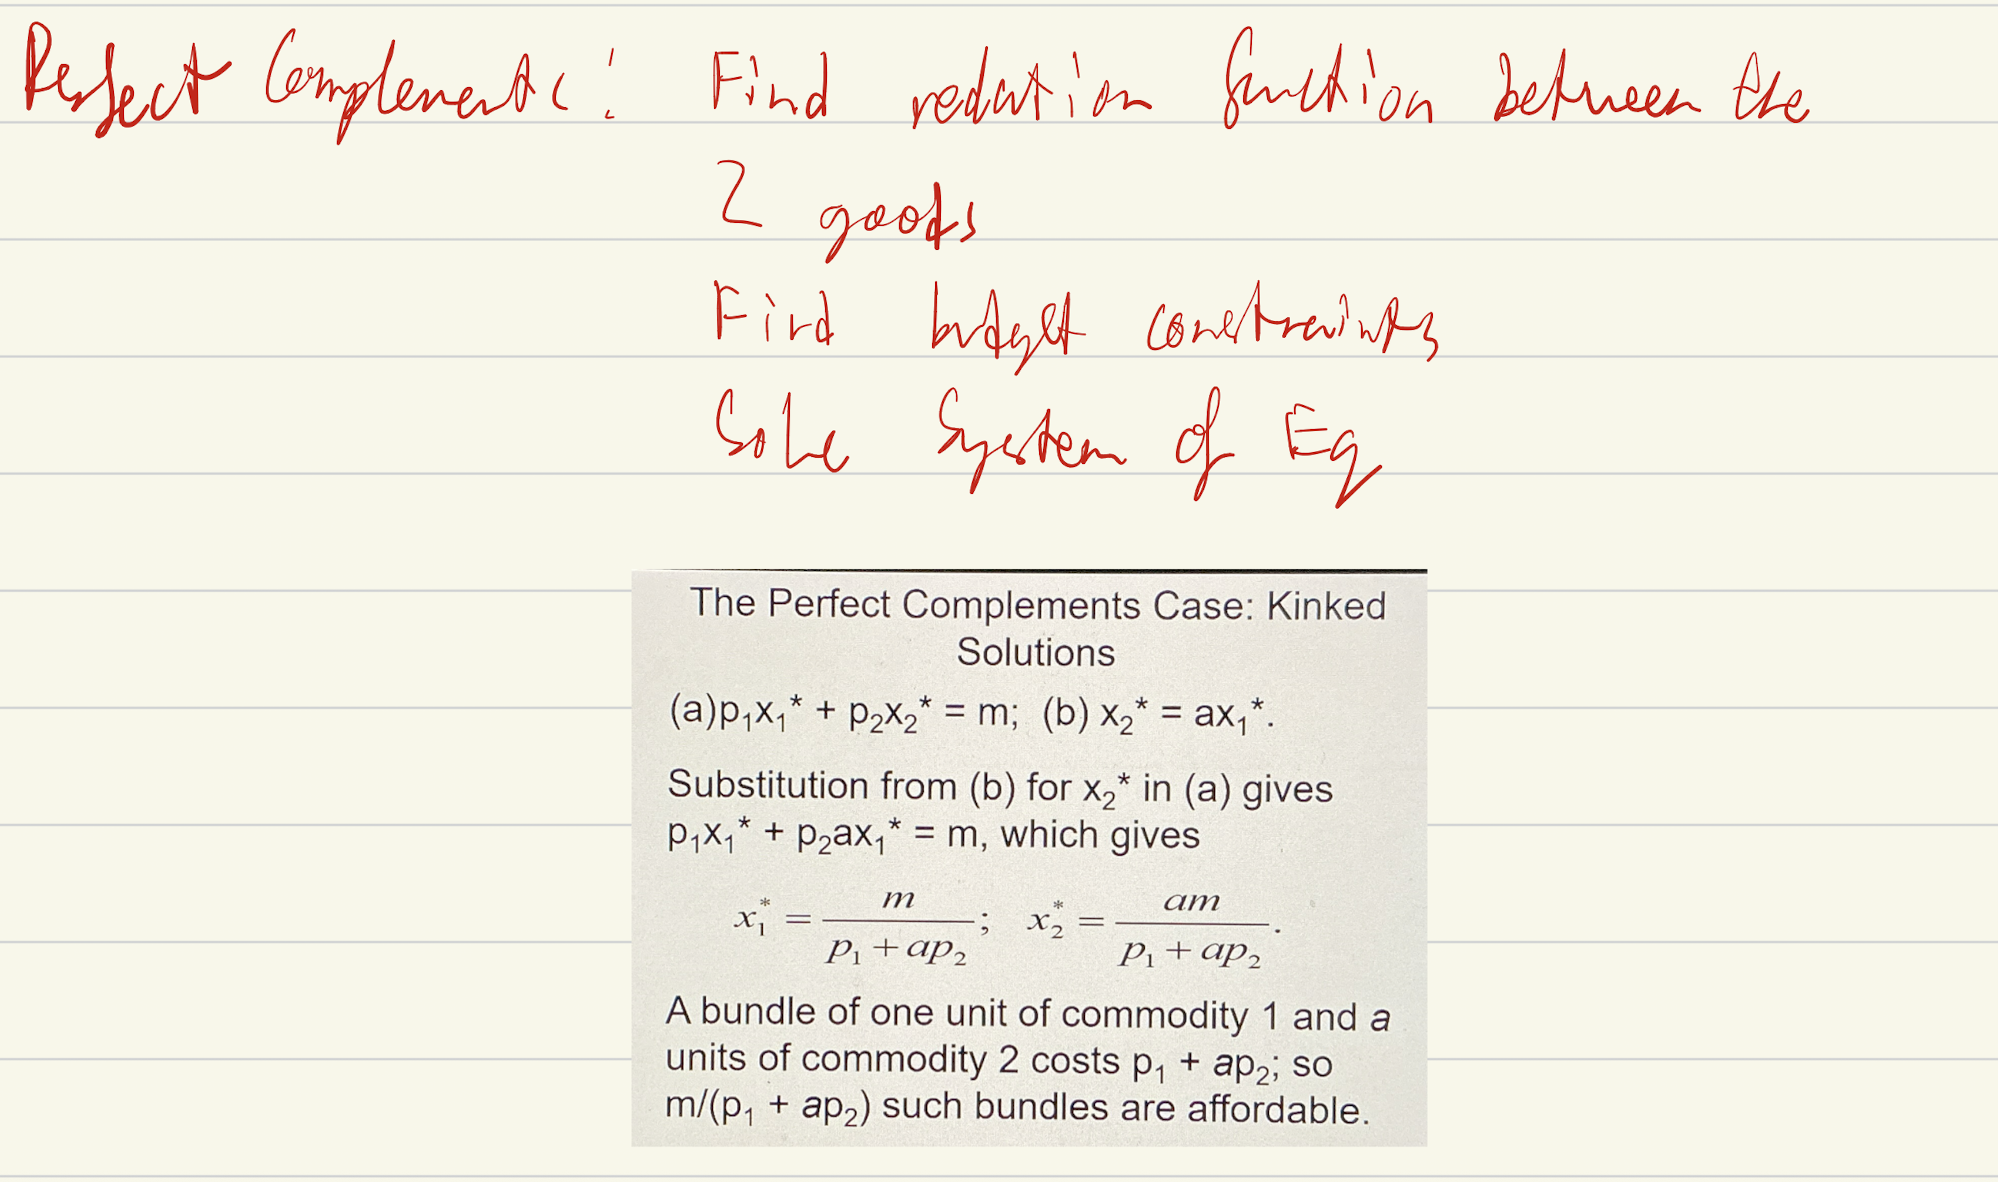 Perfect Complements: Find relation function between the
2 goods
Find budget constraints
Solve System of Eq
The Perfect Complements Case: Kinked
Solutions
(a)p₁x₁* + p₂x₂* = m; (b) x₂* = ax₁*.
Substitution from (b) for x₂* in (a) gives
p₁x₁* + p₂ax₁* = m, which gives
x₁* = m / (p₁ + ap₂); x₂* = am / (p₁ + ap₂).
A bundle of one unit of commodity 1 and a
units of commodity 2 costs p₁ + ap₂; so
m/(p₁ + ap₂) such bundles are affordable.